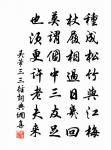 種成松竹與江梅
杖屨相過日幾回
莫謂個中三友足
也須更許老夫來
吳芾三三徑詞典網